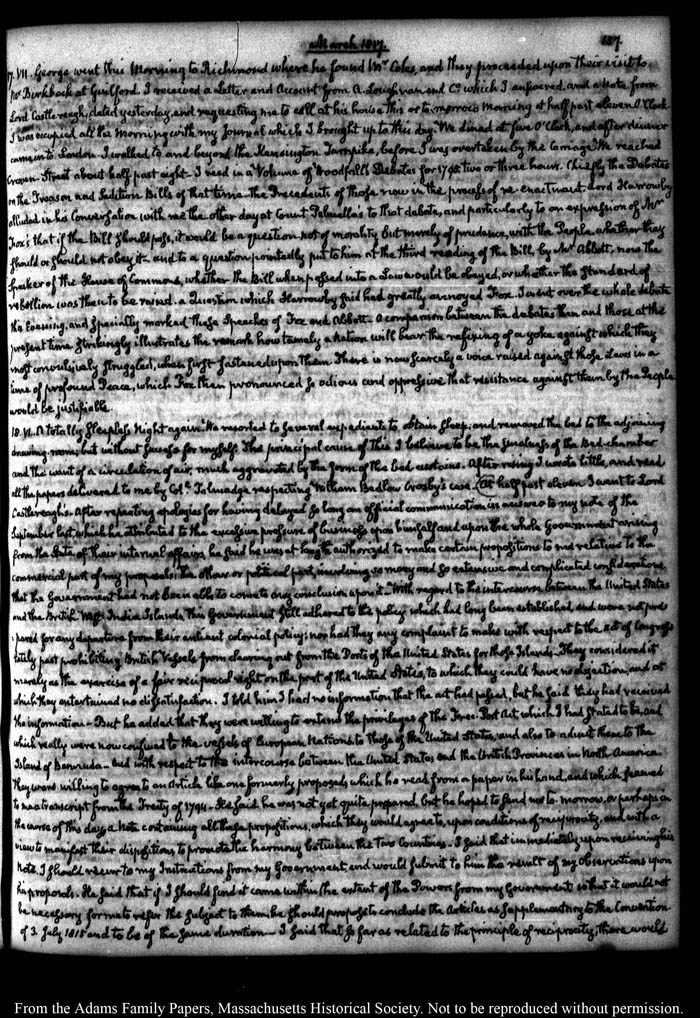 March 1817.
187.
17. VII. George went this Morning to Richmond where he found Mr Coles, and they proceeded upon their visit to
Mr Birkbeck at Guilford. I received a Letter and Account from A. Loughnan and Co. which I answered, and a Note from
Lord Castlereagh, dated yesterday, and requesting me to call at his house this or to-morrow Morning at half past eleven O'Clock.
I was occupied all the Morning with my Journal which I brought up to this day. We dined at five O'Clock, and after dinner
came in to London. I walked to and beyond the Kensington Turnpike, before I was overtaken by the Carriage. We reached
Craven-Street about half past eight. I read in a Volume of Woodfall's Debates for 1795 two or three hours. Chiefly the Debates
on the Treason and Sedition Bills of that time. The Precedents of those now in the process of re-enactment. Lord Harrowby
alluded in his Conversation with me the other day at Count Palmella's to that debate, and particularly to an expression of Mr
Fox's that if the Bill should pass, it would be a question not of morality but merely of prudence, with the People, whether they
should or should not obey it—and to a question pointedly put to him at the third reading of the Bill, by Mr Abbott, now the
Speaker of the House of Commons, whether the Bill when passed into a Law would be obeyed, or whether the Standard of
rebellion was then to be raised. a Question which Harrowby said had greatly annoyed Fox. I went over the whole debate
this Evening, and specially marked these Speeches of Fox and Abbott. A comparison between the debates then and those at the
present time strikingly illustrates the remark how tamely a nation will bear the refixing of a yoke against which they
most convulsively struggled, when first fastened upon them. There is now scarcely a voice raised against those Laws in a
time of profound Peace, which Fox then pronounced so odious and oppressive that resistance against them by the People
would be justifiable.
18. VI. A totally sleepless Night again. We resorted to several expedients to obtain sleep, and removed the bed to the adjoining
drawing-room; but without success for myself. The principal cause of this I believe to be the smallness of the Bed-chamber
and the want of a circulation of air, much aggravated by the form of the bed curtains. After rising I wrote little, and read
all the papers delivered to me by Coll. Talmadge respecting William Bedlow Crosby's case. At half past eleven I went to Lord
Castlereagh's. After repeating apologies for having delayed so long an official communication in answer to my note of the
September last, which he attributed to the excessive pressure of business upon himself and upon the whole Government arising
from the State of their internal affairs, he said he was at length authorized to make certain propositions to me relative to the
commercial part of my proposals: the other or political part, involving so many and so extensive and complicated considerations,
that the Government had not been able to come to any conclusion upon it. With regard to the intercourse between the United States
and the British West India Islands, this Government still adhered to the policy which had long been established, and were not pre-
:pared for any departure from their antient colonial policy; nor had they any complaint to make with respect to the act of Congress
lately past prohibiting British Vessels from clearing out from the Ports of the United States for those Islands. They considered it
merely as the exercise of a fair reciprocal right on the part of the United States, to which they could have no objection, and at
which they entertained no dissatisfaction. I told him I had no information that the act had passed, but he said they had received
the information—But he added that they were willing to extend the privileges of the Free-Port Act, which I had stated to be, and
which really were now confined to the vessels of European Nations to those of the United States, and also to admit them to the
Island of Bermuda—and with respect to the intercourse between the United States and the British Provinces in North-America,
They were willing to agree to an Article like one formerly proposed, which he read from a paper in his hand, and which seemed
to me a transcript from the Treaty of 1794. He said he was not yet quite prepared, but he hoped to send me to-morrow, or perhaps in
the course of this day, a Note containing all these propositions, which they would agree to, upon conditions of reciprocity, and with a
view to manifest their disposition, to promote the harmony between the Two Countries. I said that immediately upon receiving his
Note, I should recur to my Instructions from my Government, and would submit to him the result of my observations upon
his proposals. He said that if I should find it came within the extent of the Powers from my Government so that it would not
be necessary for me to refer the subject to them, he should propose to conclude the Articles as supplementary to the Convention
of 3. July 1815 and to be of the same duration—I said that so far as related to the principle of reciprocity, there would
From the Adams Family Papers, Massachusetts Historical Society. Not to be reproduced without permission.